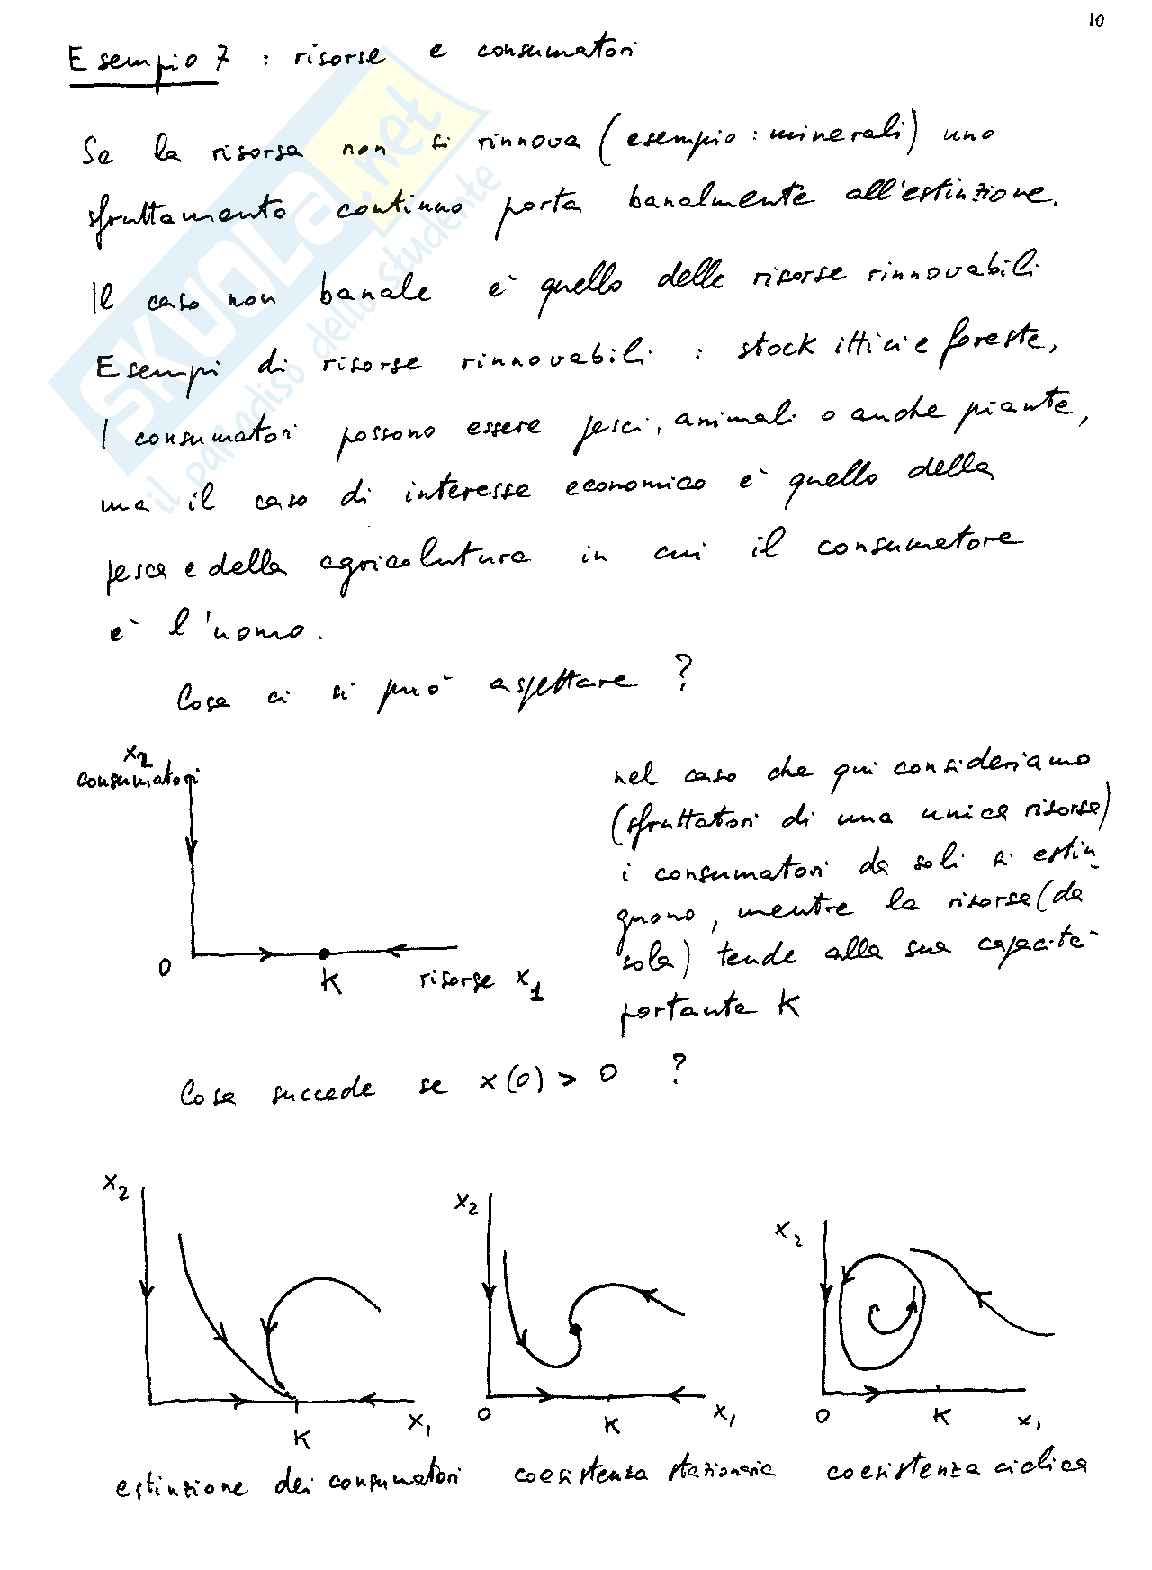 10
Esempio 7 : risorse e consumatori
Se la risorsa non si rinnova (esempio : minerali) uno
sfruttamento continuo porta banalmente all'estinzione.
Il caso non banale è quello delle risorse rinnovabili
Esempi di risorse rinnovabili : stock ittici e foreste,
I consumatori possono essere pesci, animali o anche piante,
ma il caso di interesse economico è quello della
pesca e della agricolutura in cui il consumatore
è l'uomo.
Cosa ci si può aspettare ?
x2
consumatori
0
K
risorse x1
nel caso che qui consideriamo
(sfruttatori di una unica risorsa)
i consumatori da soli si estin-
guono, mentre la risorsa (da
sola) tende alla sua capacità
portante K
Cosa succede se x(0) > 0 ?
x2
K
x1
estinzione dei consumatori
x2
0
K
x1
coesistenza stazionaria
x2
0
K
x1
coesistenza ciclica
SKUOLA.net
il paradiso dello studente